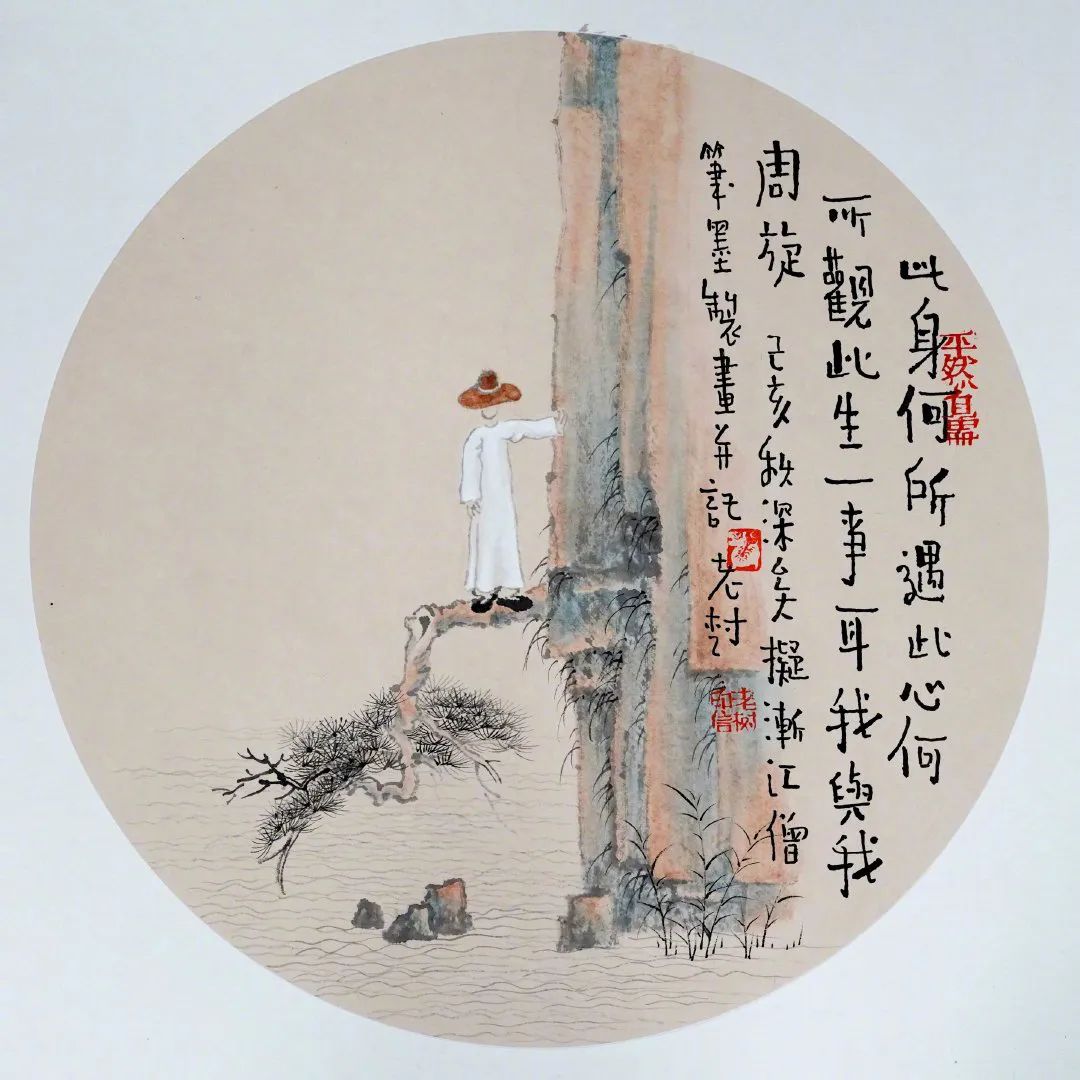 此身何所遇此心何
所觀此生一事耳我與我
周旋 己亥秋深矣擬漸江僧
筆墨製畫并記 老树
老树印信